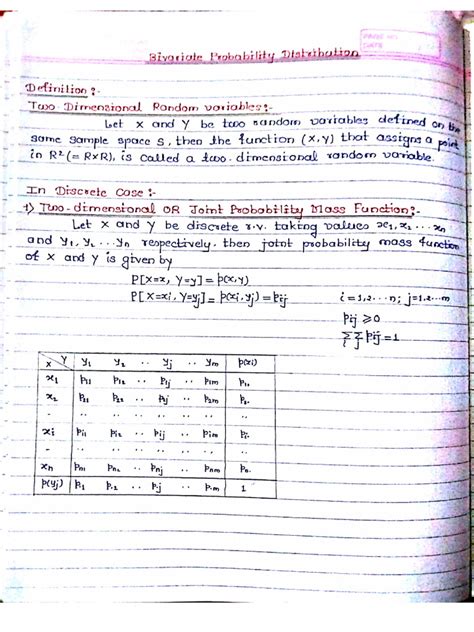 PAGE NO.
DATE
Bivariate Probability Distribution
Definition :-
Two-Dimensional Random variables :-
Let X and Y be two random variables defined on the
same sample space S, then the function (X,Y) that assigns a point
in R² (= R×R), is called a two-dimensional random variable.
In Discrete Case :-
1) Two-dimensional OR Joint Probability Mass Function :-
Let X and Y be discrete r.v. taking values x1, x2 ... xn
and y1, y2 ... yn respectively. then joint probability mass function
of X and Y is given by
P[X=x, Y=y] = p(x,y)
P[X=xi, Y=yj] = p(xi,yj) = pij i=1,2...n; j=1,2...m
pij ≥ 0
∑∑ pij = 1
i j
X Y y1 y2 .. yj .. ym p(xi)
x1 p11 p12 .. p1j .. p1m p1.
x2 p21 p22 .. p2j .. p2m p2.
.. .. .. .. .. ..
xi pi1 pi2 .. pij .. pim pi.
.. .. .. .. .. ..
xn pn1 pn2 .. pnj .. pnm pn.
p(yj) p.1 p.2 .. p.j .. p.m 1